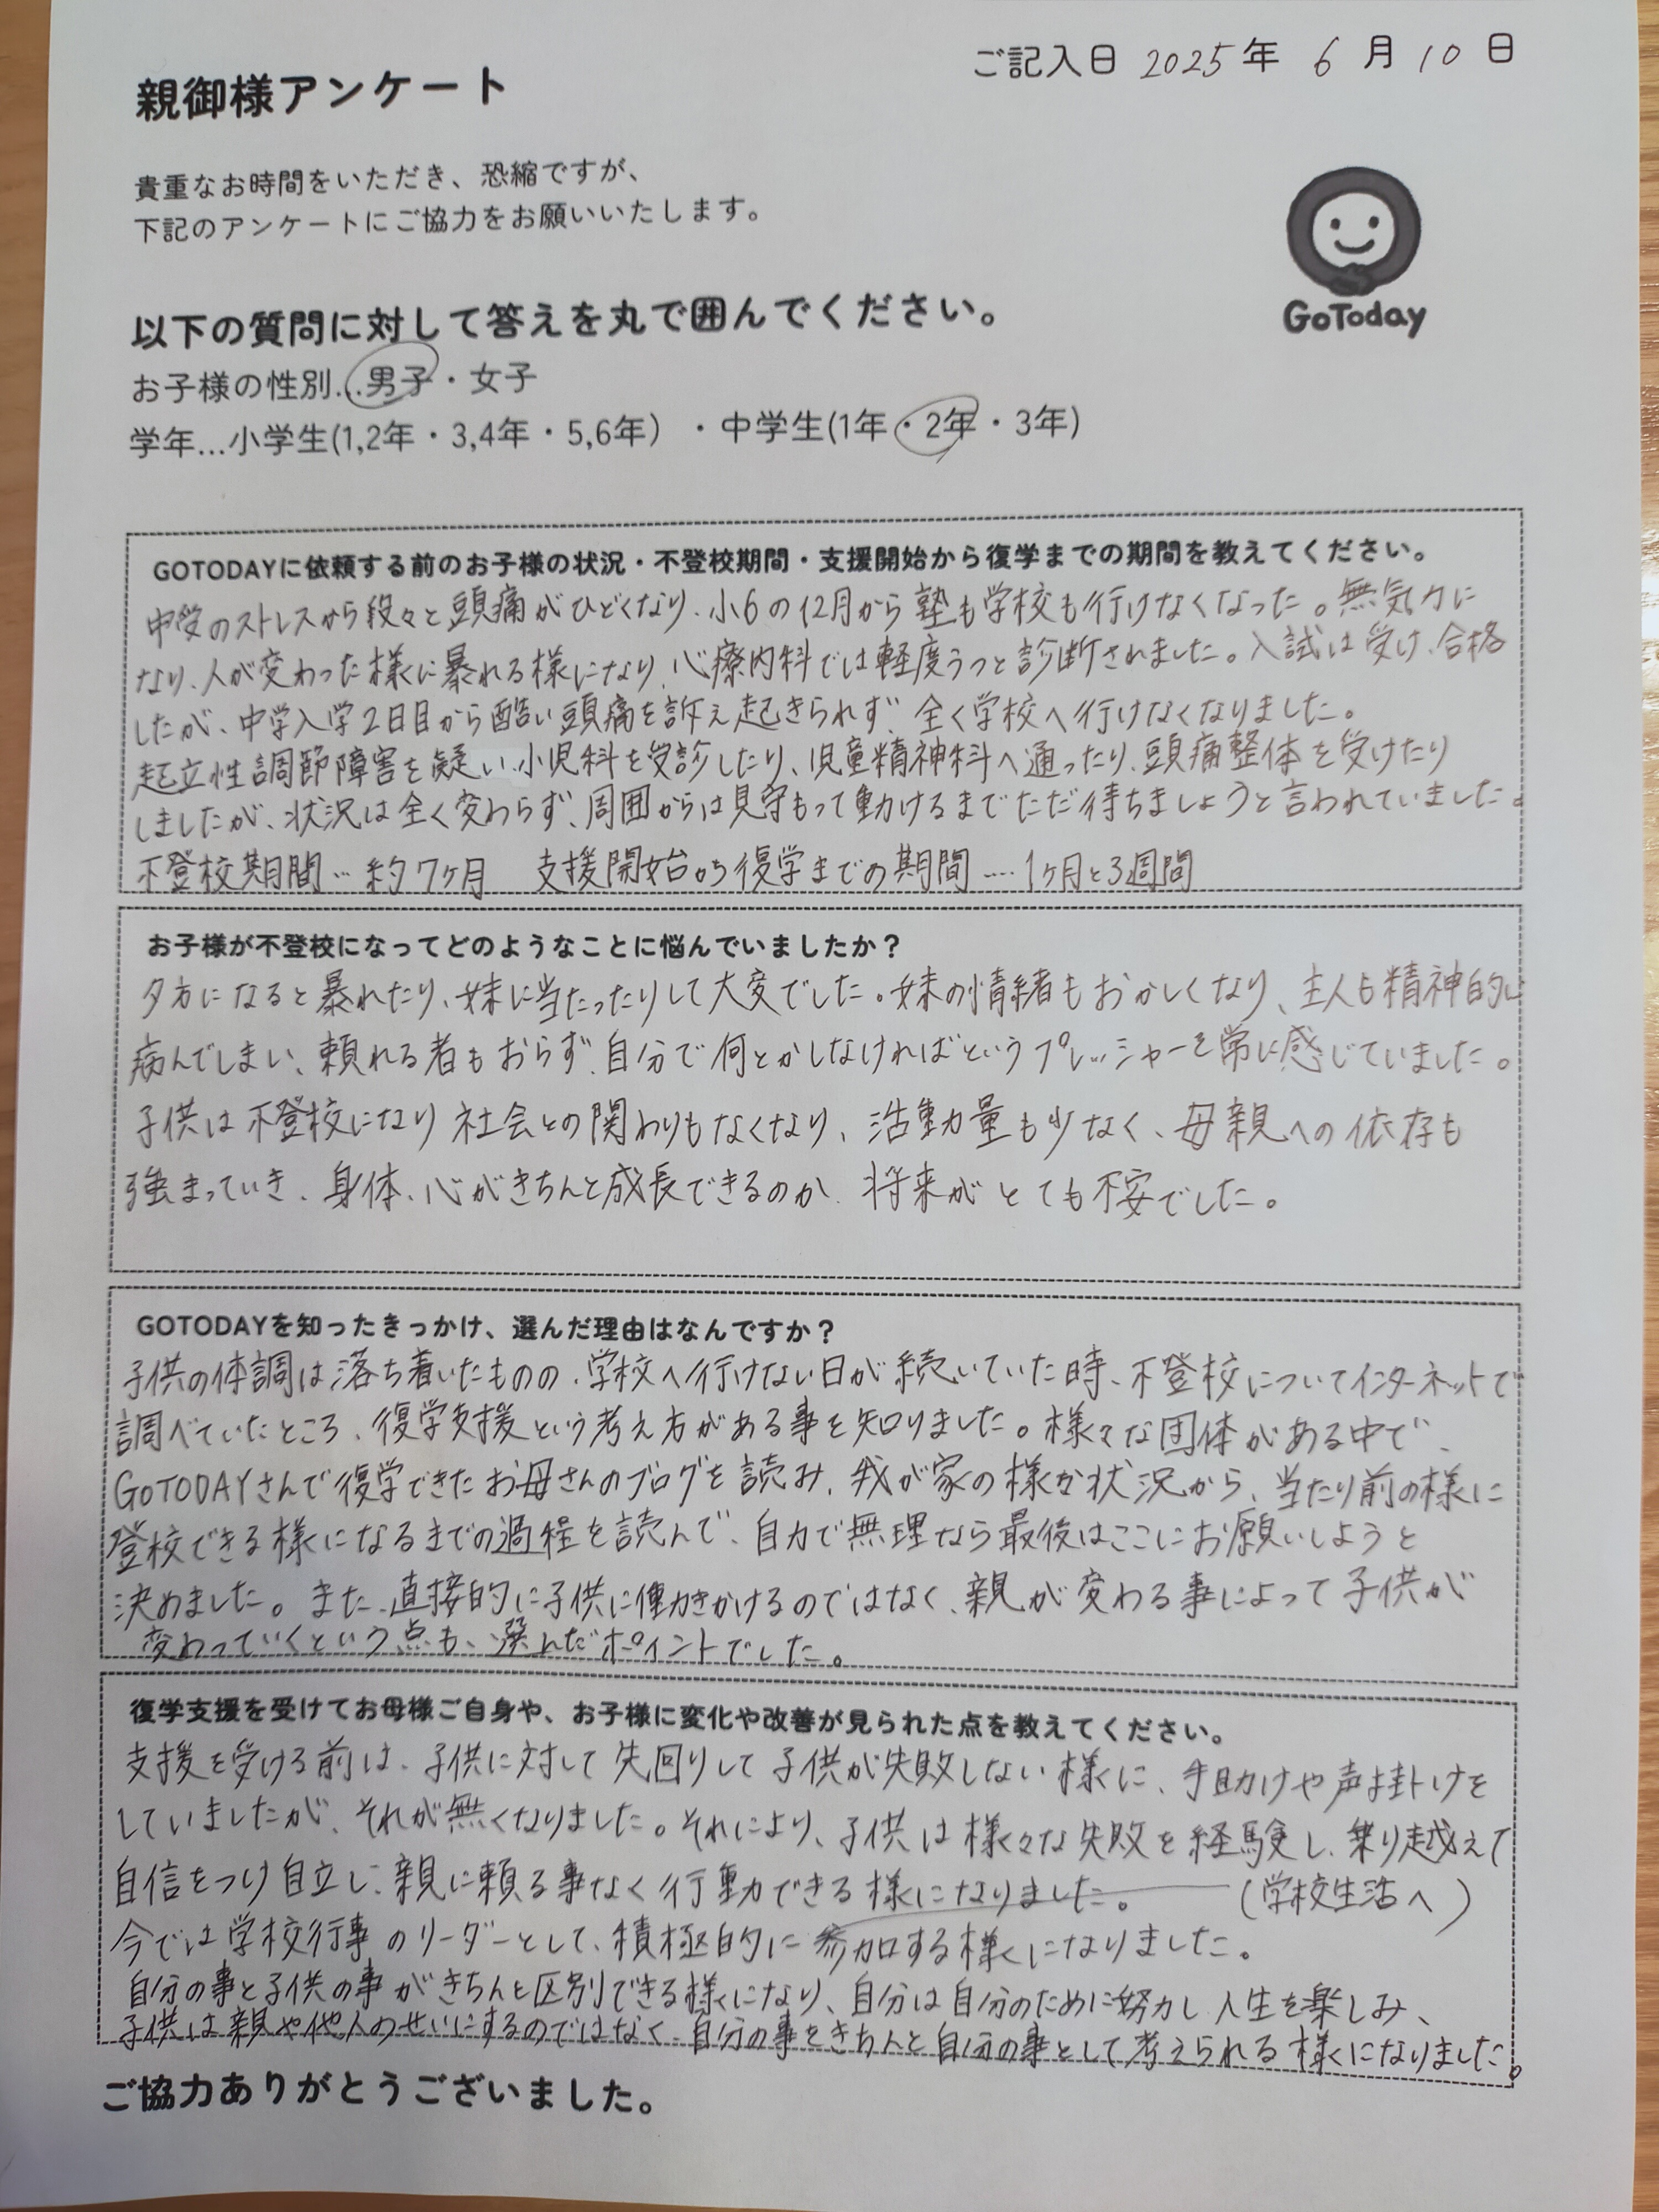 ご記入日 2025年 6月 10日
親御様アンケート
貴重なお時間をいただき、恐縮ですが、
下記のアンケートにご協力をお願いいたします。
GoToday
以下の質問に対して答えを丸で囲んでください。
お子様の性別...男子・女子
学年...小学生(1,2年・3,4年・5,6年）・中学生(1年・2年・3年)
GOTODAYに依頼する前のお子様の状況・不登校期間・支援開始から復学までの期間を教えてください。
中受のストレスから段々と頭痛がひどくなり、小6の12月から塾も学校も行けなくなった。無気力に
なり、人が変わった様に暴れる様になり、心療内科では軽度うつと診断されました。入試は受け、合格
したが、中学入学2日目から酷い頭痛を訴え起きられず、全く学校へ行けなくなりました。
起立性調節障害を疑い、小児科を受診したり、児童精神科へ通ったり、頭痛整体を受けたり
しましたが、状況は全く変わらず、周囲からは見守もって動けるまでただ待ちましょうと言われていました。
不登校期間…約7ヶ月 支援開始から復学までの期間…1ヶ月と3週間
お子様が不登校になってどのようなことに悩んでいましたか？
夕方になると暴れたり、妹に当たったりして大変でした。妹の情緒もおかしくなり、主人も精神的に
病んでしまい、頼れる者もおらず、自分で何とかしなければというプレッシャーを常に感じていました。
子供は不登校になり社会との関わりもなくなり、活動量も少なく、母親への依存も
強まっていき、身体、心がきちんと成長できるのか、将来がとても不安でした。
GOTODAYを知ったきっかけ、選んだ理由はなんですか？
子供の体調は落ち着いたものの、学校へ行けない日が続いていた時、不登校についてインターネットで
調べていたところ、復学支援という考え方がある事を知りました。様々な団体がある中で、
GOTODAYさんで復学できたお母さんのブログを読み、我が家の様な状況から、当たり前の様に
登校できる様になるまでの過程を読んで、自力で無理なら最後はここにお願いしようと
決めました。また、直接的に子供に働きかけるのではなく、親が変わる事によって子供が
変わっていくという点も、選んだポイントでした。
復学支援を受けてお母様ご自身や、お子様に変化や改善が見られた点を教えてください。
支援を受ける前は、子供に対して先回りして子供が失敗しない様に、手助けや声掛けを
していましたが、それが無くなりました。それにより、子供は様々な失敗を経験し、乗り越えて
自信をつけ自立し、親に頼る事なく行動できる様になりました。（学校生活へ）
今では学校行事のリーダーとして、積極的に参加する様になりました。
自分の事と子供の事がきちんと区別できる様になり、自分は自分のために努力し人生を楽しみ、
子供は親や他人のせいにするのではなく、自分の事をきちんと自分の事として考えられる様になりました。
ご協力ありがとうございました。